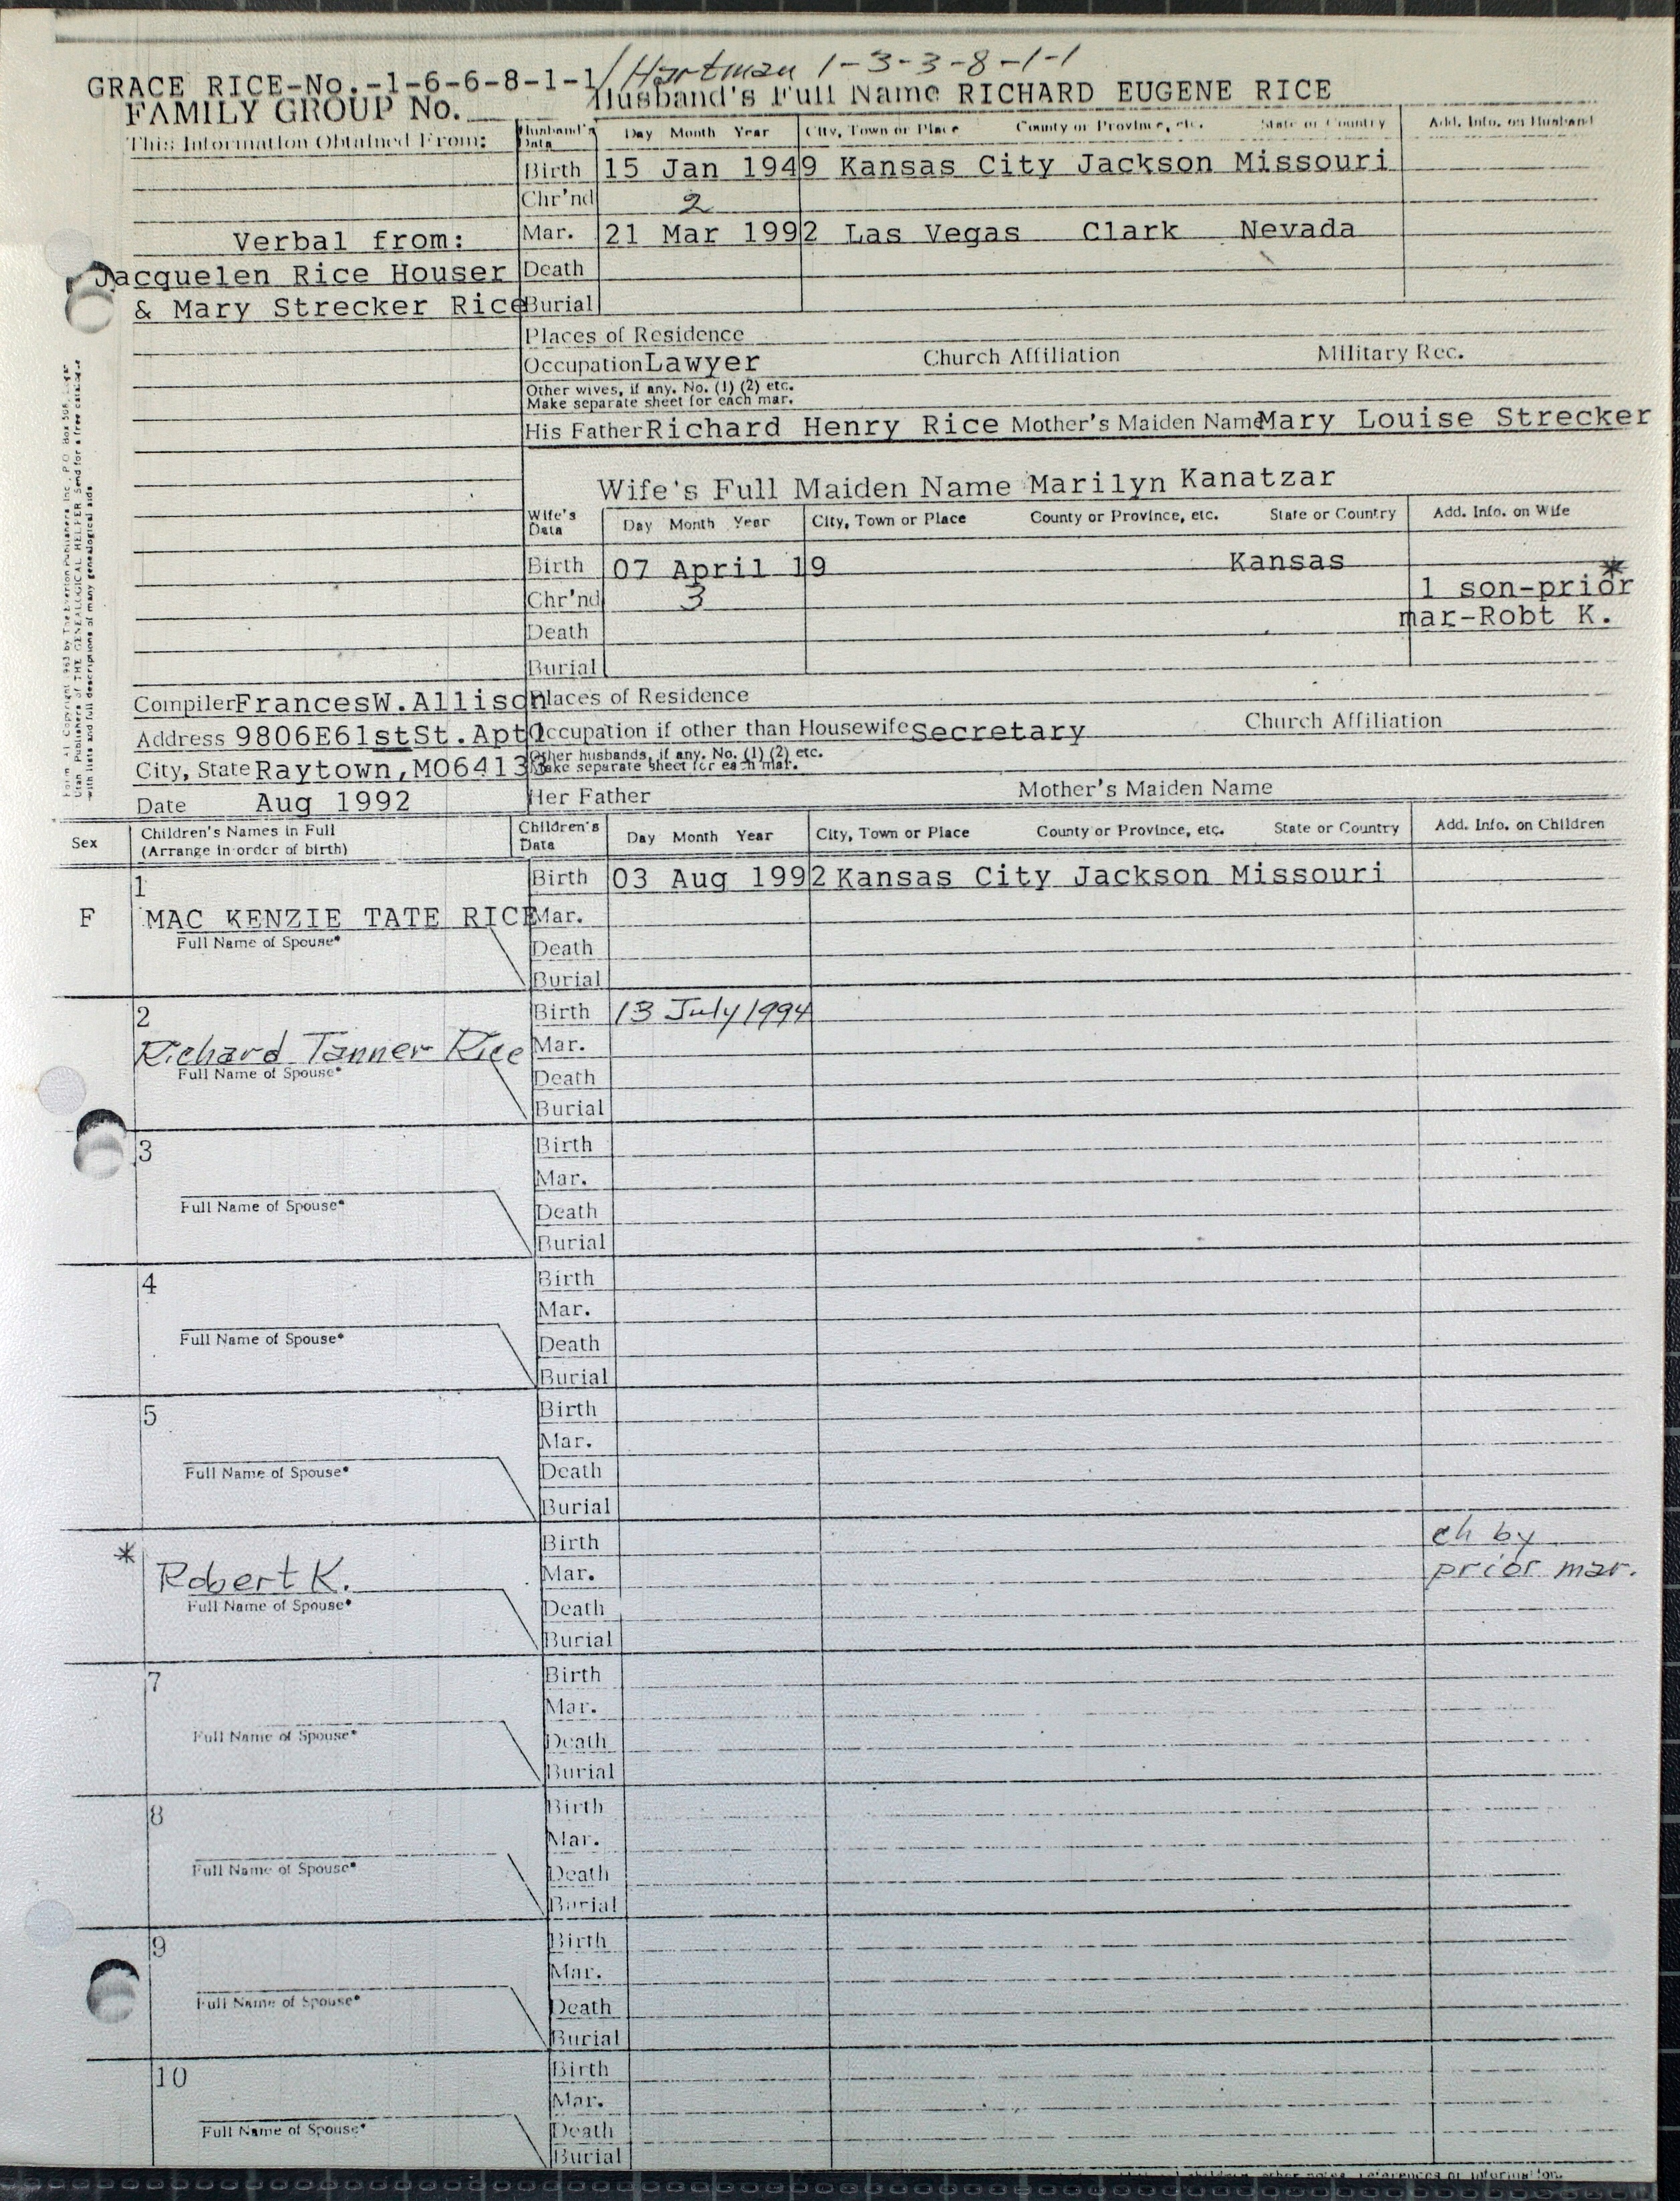 GRACE RICE-No.-1-6-6-8-1-1/ Hartman 1-3-3-8-1-1
FAMILY GROUP No. Husband's Full Name RICHARD EUGENE RICE
This Information Obtained From: Husband's Data Day Month Year City, Town or Place County or Province, etc. State or Country Add. Info. on Husband
Birth 15 Jan 1949 Kansas City Jackson Missouri
Chr'nd 2
Verbal from: Mar. 21 Mar 1992 Las Vegas Clark Nevada
Jacquelen Rice Houser Death
& Mary Strecker Rice Burial
Places of Residence
Occupation Lawyer Church Affiliation Military Rec.
Other wives, if any. No. (1) (2) etc.
Make separate sheet for each mar.
His Father Richard Henry Rice Mother's Maiden Name Mary Louise Strecker
Wife's Full Maiden Name Marilyn Kanatzar
Wife's Data Day Month Year City, Town or Place County or Province, etc. State or Country Add. Info. on Wife
Birth 07 April 19 Kansas *
Chr'nd 3 1 son-prior
Death mar-Robt K.
Burial
Compiler FrancesW.Allison Places of Residence
Address 9806E61stSt.Apt1 Occupation if other than Housewife Secretary Church Affiliation
City, State Raytown,MO64133 Other husbands, if any. No. (1) (2) etc.
Make separate sheet for each mar.
Date Aug 1992 Her Father Mother's Maiden Name
Form A1 Copyright 1963 by The Everton Publishers Inc., P.O. Box 368,
Utah Publishers of THE GENEALOGICAL HELPER Send for a free catalogue
with lists and full descriptions of many genealogical aids
Sex Children's Names in Full Children's Data Day Month Year City, Town or Place County or Province, etc. State or Country Add. Info. on Children
(Arrange in order of birth)
1 Birth 03 Aug 1992 Kansas City Jackson Missouri
F MAC KENZIE TATE RICE Mar.
Full Name of Spouse* Death
Burial
2 Birth 13 July 1994
Richard Tanner Rice Mar.
Full Name of Spouse* Death
Burial
3 Birth
Mar.
Full Name of Spouse* Death
Burial
4 Birth
Mar.
Full Name of Spouse* Death
Burial
5 Birth
Mar.
Full Name of Spouse* Death
Burial
* Birth ch by
Robert K. Mar. prior mar.
Full Name of Spouse* Death
Burial
7 Birth
Mar.
Full Name of Spouse* Death
Burial
8 Birth
Mar.
Full Name of Spouse* Death
Burial
9 Birth
Mar.
Full Name of Spouse* Death
Burial
10 Birth
Mar.
Full Name of Spouse* Death
Burial
children, other notes, references or information.